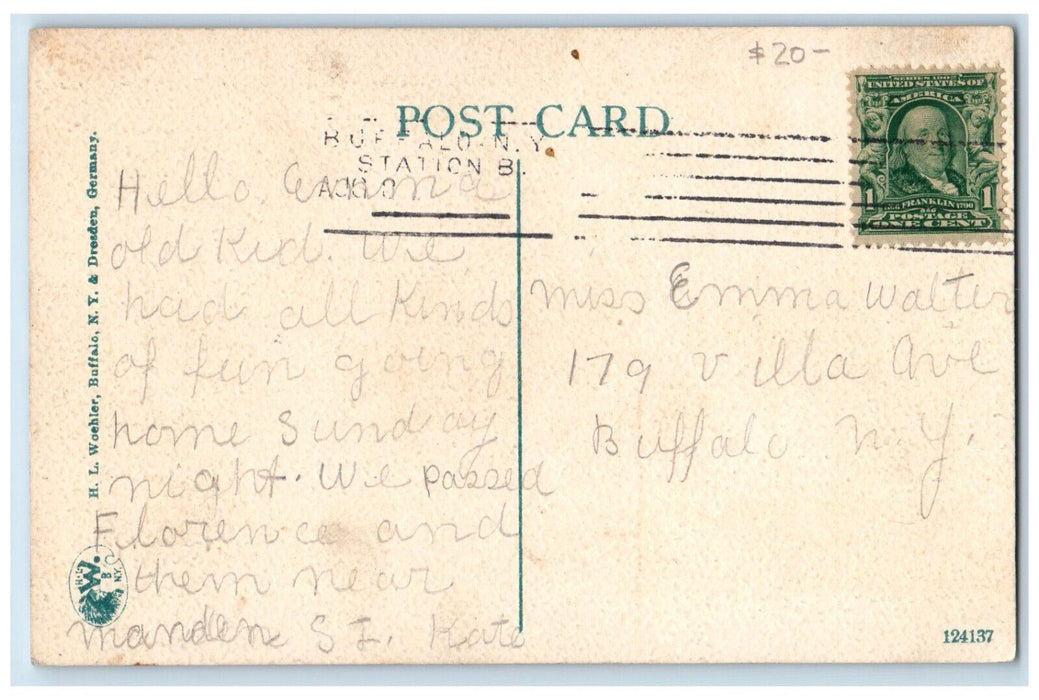 $20-
POST CARD
BUFFALO. N.Y.
STATION B.
AUG
SERIES 1902
UNITED STATES OF
AMERICA
1 1
1706 FRANKLIN 1790
POSTAGE
ONE CENT
Hello Emma
old Kid. We
had all Kinds
of fun going
home Sunday
night. We passed
Florence and
them near
St. Kate
Miss Emma Walter
179 Villa Ave
Buffalo N.Y.
H. L. Woehler, Buffalo, N. Y. & Dresden, Germany.
H.L.W.
B
N.Y.
124137